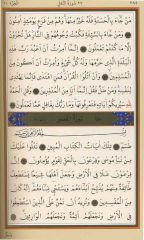 سورة النمل
من جاء بالحسنة فله خير منها وهم من فزع يومئذ آمنون
ومن جاء بالسيئة فكبت وجوههم في النار هل تجزون
إلا ما كنتم تعملون إنما أمرت أن أعبد رب هذه
البلدة الذي حرمها وله كل شيء وأمرت أن أكون من
المسلمين وأن أتلو القرآن فمن اهتدى فإنما يهتدي
لنفسه ومن ضل فقل إنما أنا من المنذرين وقل الحمد
لله سيريكم آياته فتعرفونها وما ربك بغافل عما تعملون
سورة القصص
بسم الله الرحمن الرحيم
طسم تلك آيات الكتاب المبين نتلو عليك
من نبإ موسى وفرعون بالحق لقوم يؤمنون إن فرعون
علا في الأرض وجعل أهلها شيعا يستضعف طائفة
منهم يذبح أبناءهم ويستحيي نساءهم إنه كان من
المفسدين ونريد أن نمن على الذين استضعفوا
في الأرض ونجعلهم أئمة ونجعلهم الوارثين